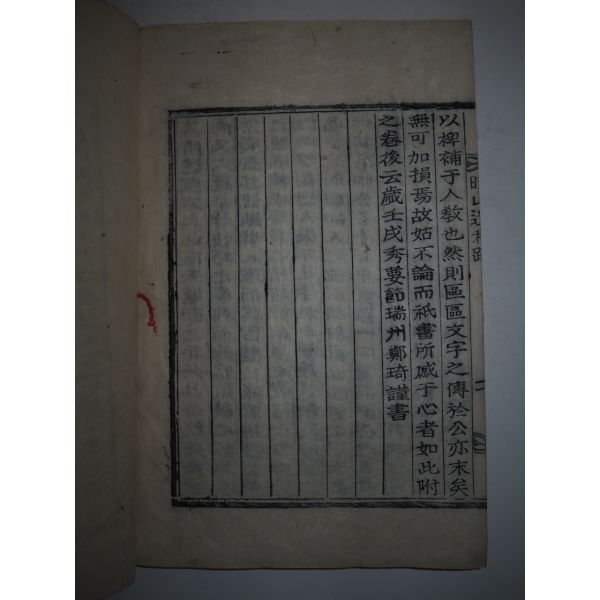 以裨補于人敎也然則區區文字之傳於公亦末矣
無可加損焉故姑不論而祇書所感于心者如此附
之卷後云歲壬戌秀葽節瑞州鄭琦謹書